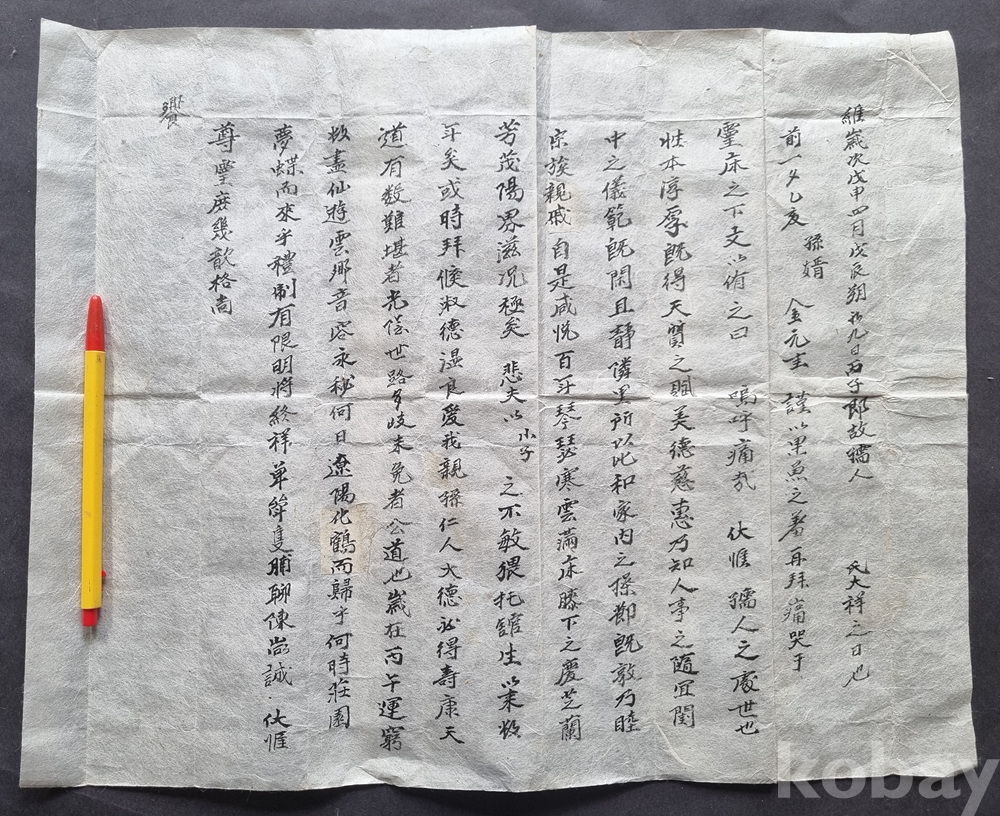 維歲次戊申四月戊辰朔初九日丙子郎故孺人 氏大祥之日也
前一夕乙亥 孫婿 金元圭 謹以果魚之羞再拜痛哭于
靈床之下文以侑之曰 嗚呼痛哉 伏惟 孺人之處世也
性本淳厚旣得天質之賦美德慈惠乃知人事之隨宜閨
中之儀範旣閑且靜隣里所以比和家內之操鄙旣敦乃睦
宗族親戚自是咸悅百年琴瑟寒雲滿床膝下之慶芝蘭
芳茂陽界滋况極矣 悲夫以小子 之不敏猥托舘生以来數
年矣或時拜候淑德溫良愛我親孫仁人大德必得壽康天
道有数難堪者光陰世路多歧未免者公道也歲在丙午運窮
数盡仙遊雲鄕音容永秘何日遼陽化鶴而歸乎何時莊園
夢蝶而來乎禮制有限明將終祥單 隻脯聊陳 誠伏惟
尊靈庶幾歆格尙
饗
kobay